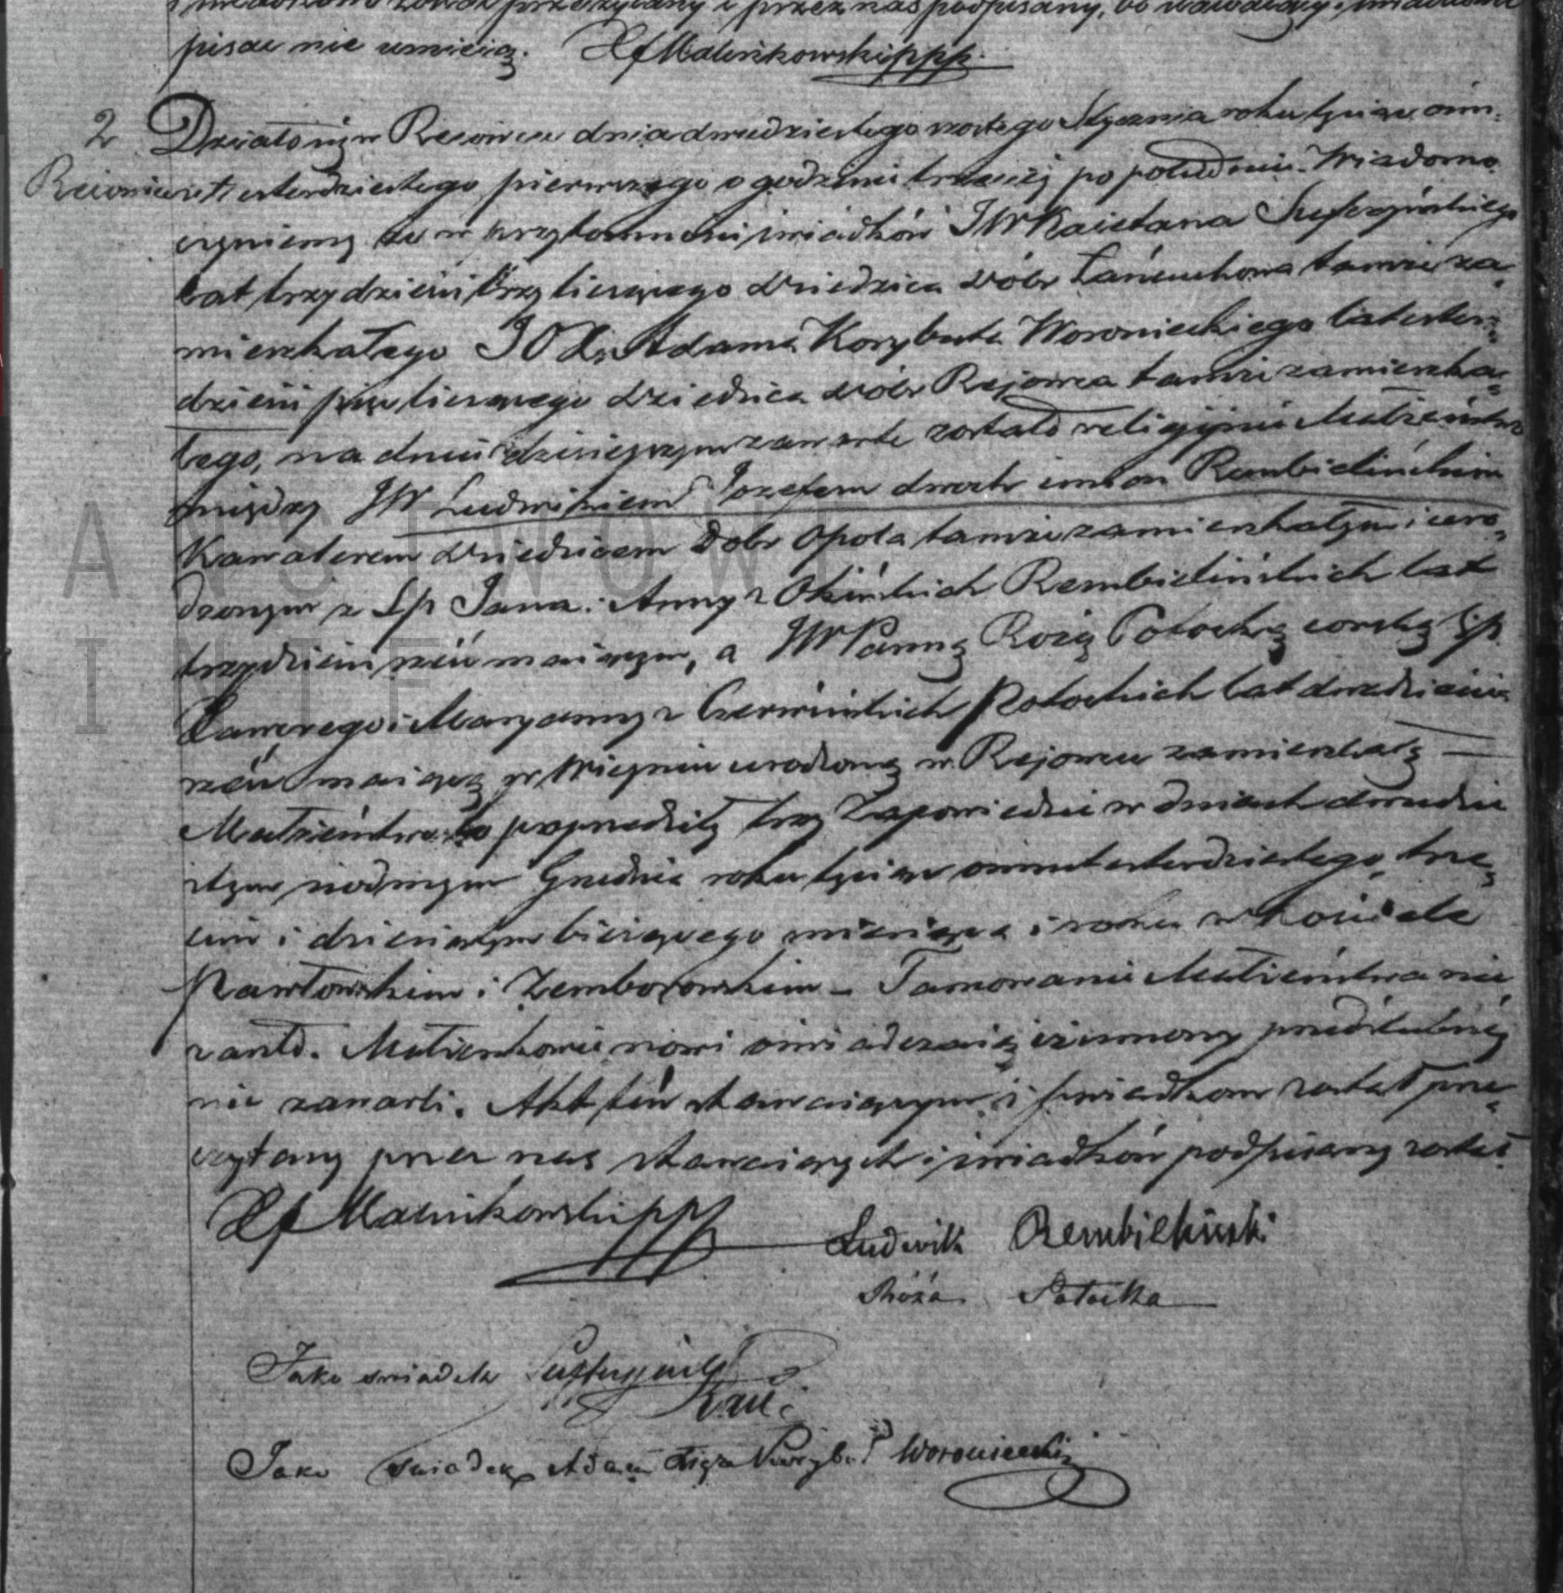 pisać nie umieją. X J Maleszkowski ppp.
2 Działo się w Rejowcu dnia dwudziestego szóstego Stycznia roku tysiąc ośm-
Rejowiec set czterdziestego pierwszego o godzinie trzeciej po południu. Wiadomo
czyniemy że w przytomności świadków JW Kajetana Suffczyńskiego
lat trzydzieści trzy liczącego dziedzica dóbr Łańcuchowa tamże za-
mieszkałego JO Adama Korybuta Woronieckiego lat czter-
dzieści liczącego dziedzica dóbr Rejowca tamże zamieszka-
łego, na dniu dzisiejszym zawarte zostało religijne Małżeństwo
między JW Ludwikiem Jozefem dwoch imion Rembielińskim
Kawalerem dziedzicem Dobr Opola tamże zamieszkałym i uro-
dzonym z Śp Jana i Anny z Rembielińskich lat
trzydzieści sześć maiącym, a JW Panną Rozią Potocką corką śp
Xawerego i Maryanny z Czerwińskich Potockich lat dwadzieścia
sześć maiącą w urodzoną w Rejowcu zamieszkałą —
Małżeństwo to poprzedziły trzy Zapowiedzie w dniach dwudzie
stym siodmym Grudnia roku tysiąc ośmset czterdziestego, trze-
cim i dziesiątym bieżącego miesiąca i roku w Kościele
Pawłowskim i — Tamowanie Małżeństwa nie
zaszło. Małżonkowie nowi oświadczaią iż umowy przedślubnéj
nie zawarli. Akt ten stawaiącym i świadkom został prze-
czytany przez nas stawaiących i świadków podpisany został
X J Maleszkowski ppp
Ludwik Rembieliński
Róża Potocka
Jako swiadek Suffczyński
Kaie:
Jako swiadek Adam Xiąże Korybut Woroniecki